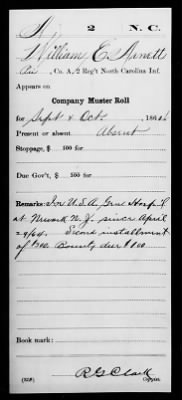 A | 2 | N. C.
William E. Arnett
Pvt, Co. A, 2 Reg't North Carolina Inf.
Appears on
Company Muster Roll
for Sept & Oct, 1864
Present or absent Absent
Stoppage, $ 100 for
Due Gov't, $ 100 for
Remarks: In U.S.A. Genl Hospil
at Newark N.J. since April
29/64. Second installment
of $300 Bounty due $100
Book mark:
R G Clark
(358) Copyist.